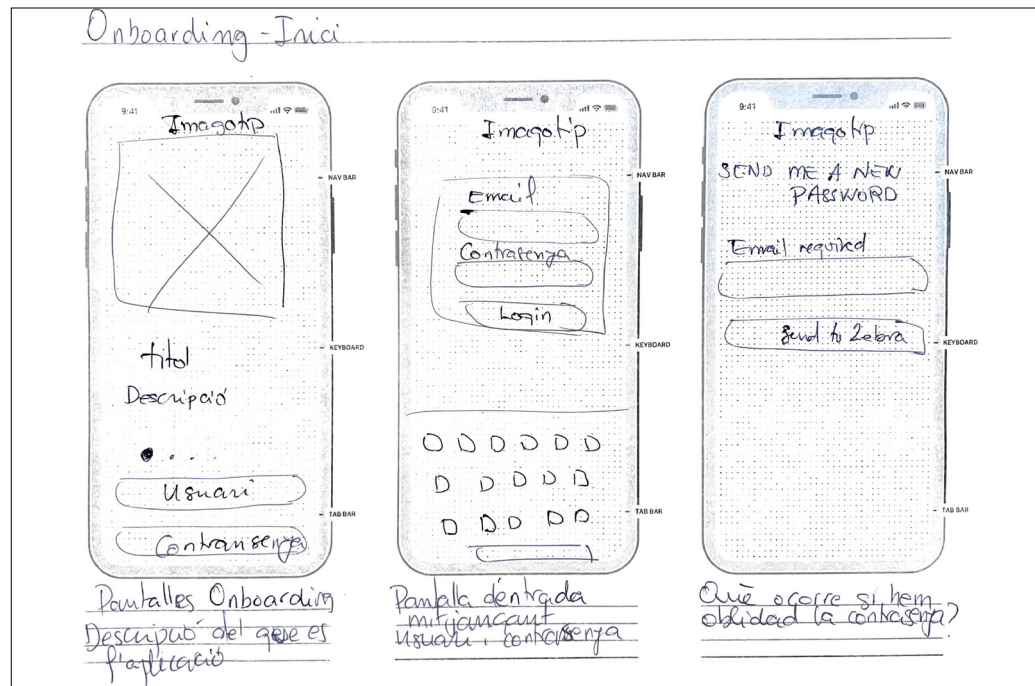 Onboarding - Inici
9:41
Imagotip
NAV BAR
titol
KEYBOARD
Descripció
Usuari
TAB BAR
Contransenya
Pantalles Onboarding
Descripció del que es
l'aplicació
9:41
Imagotip
NAV BAR
Email
Contrasenya
Login
KEYBOARD
TAB BAR
Pantalla déntrada
mitjançant
usuari i contrasenya
9:41
Imagotip
SEND ME A NEW
PASSWORD
NAV BAR
Email required
Send to Zebra
KEYBOARD
TAB BAR
Què ocorre si hem
oblidad la contrasenya?